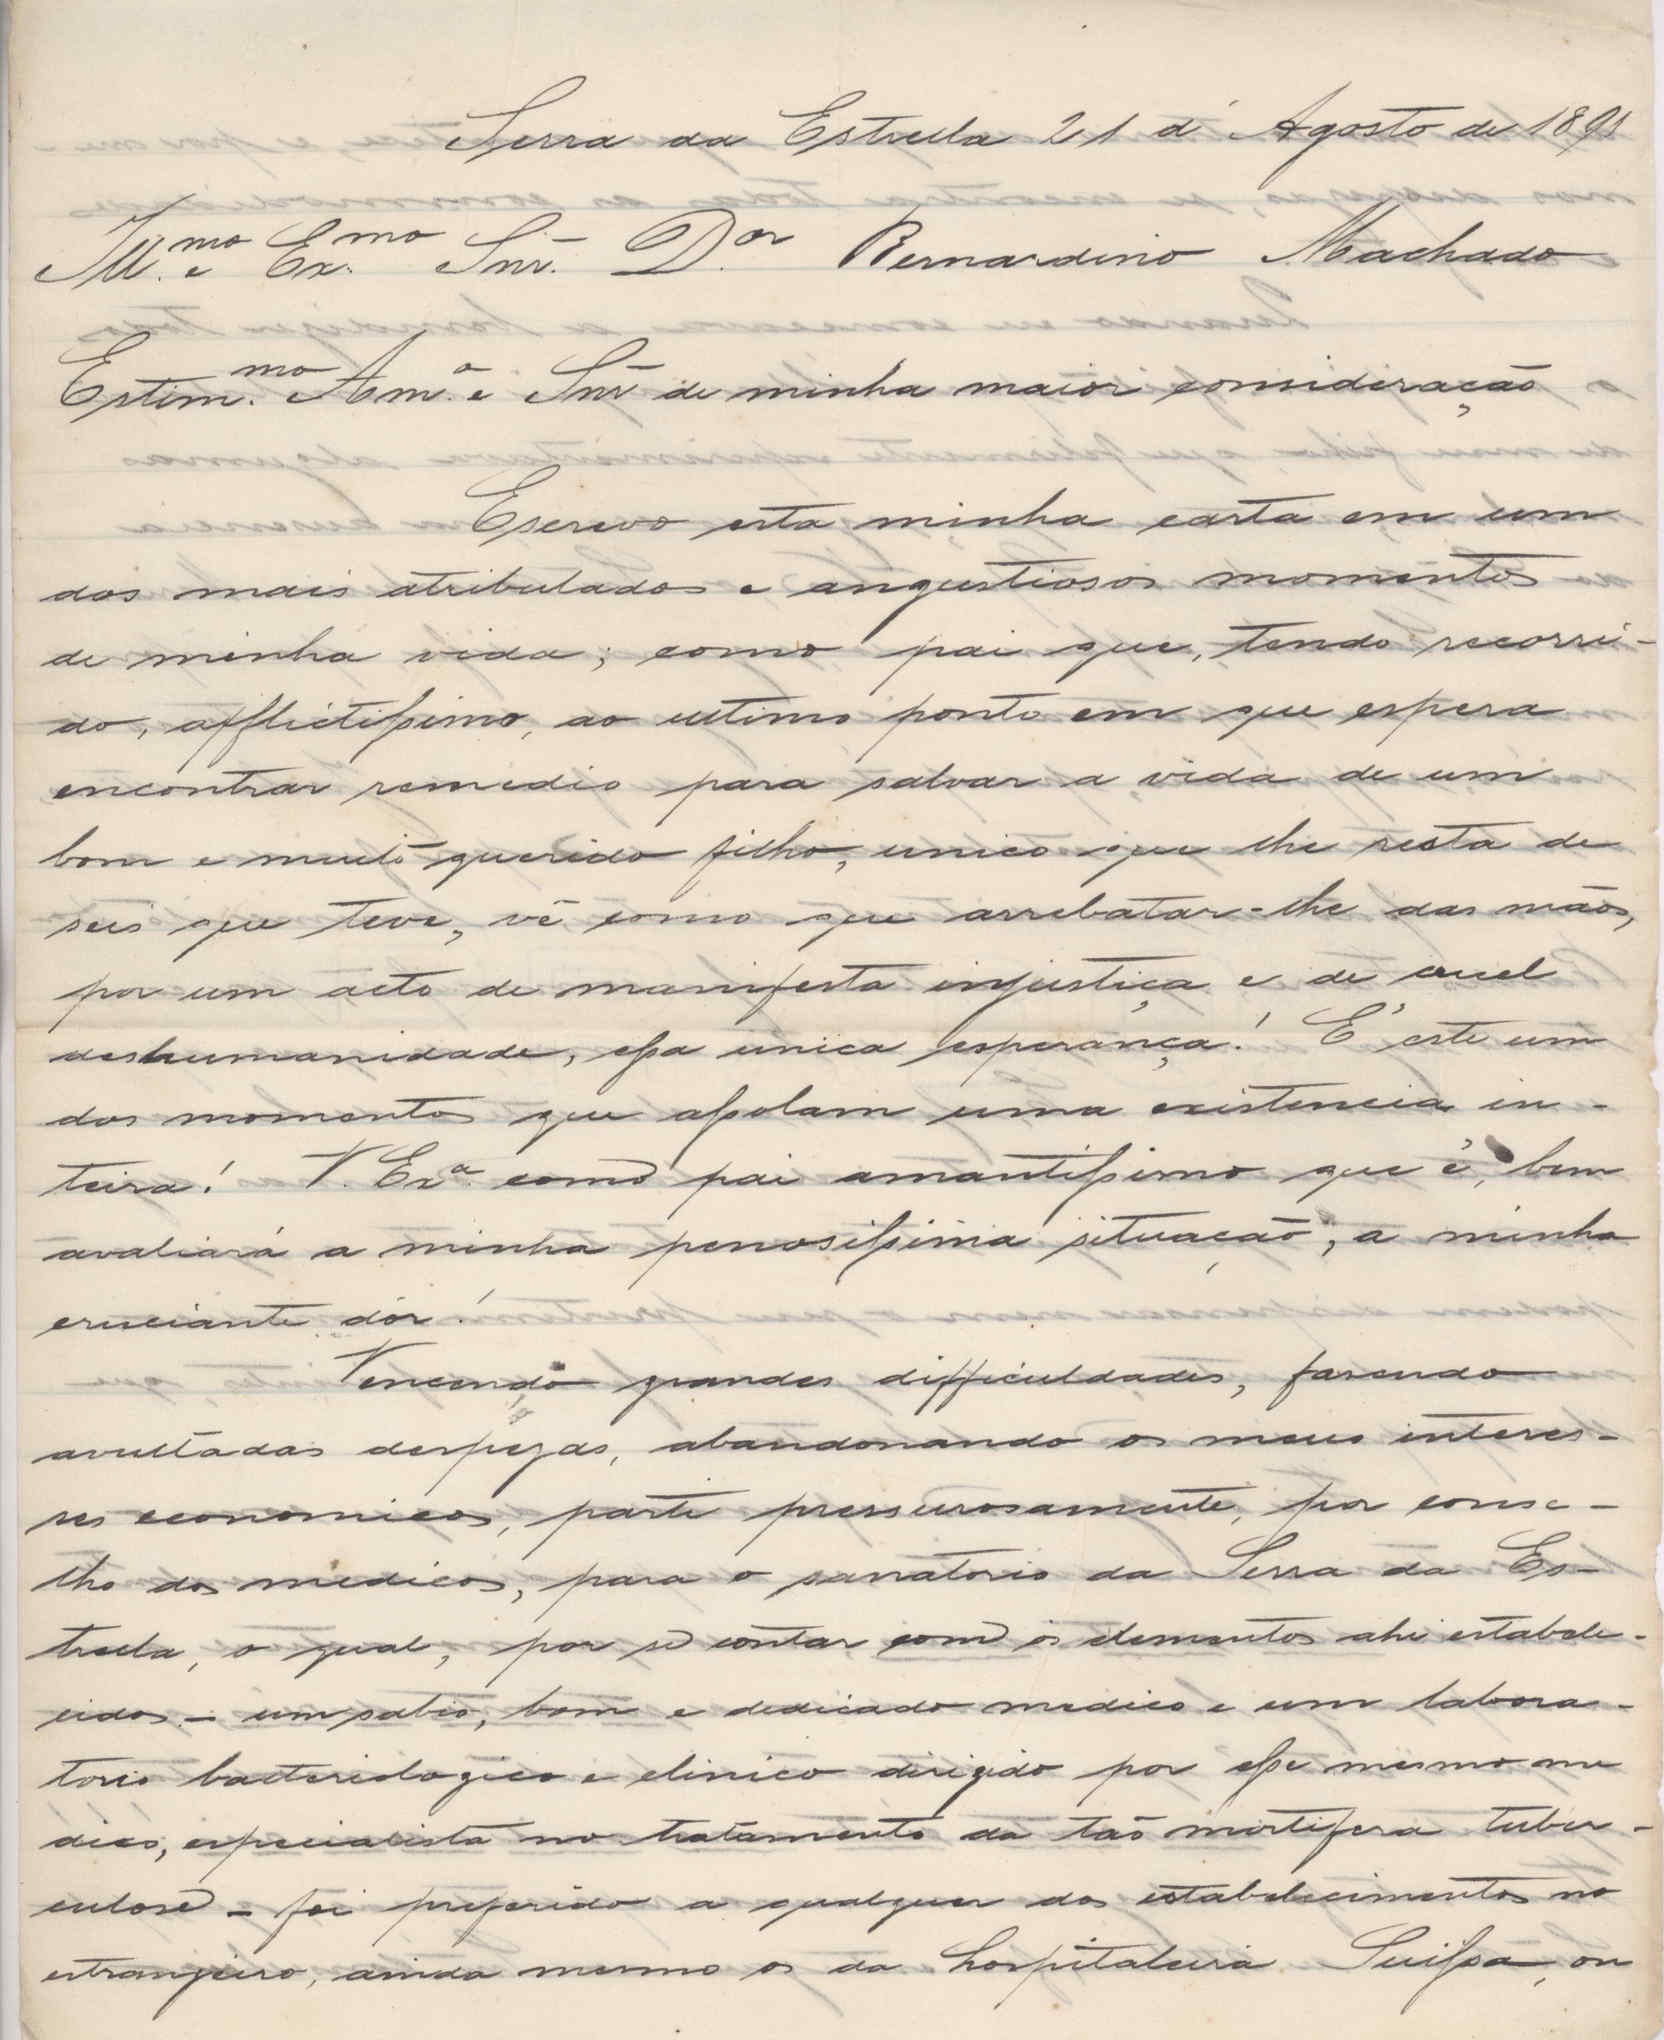 Serra da Estrella 21 d'Agosto de 1891
Ill.mo e Ex.mo Snr. D.or Bernardino Machado
Estim.mo Am.o e Snr de minha maior consideração
Escrevo esta minha carta em um
dos mais atribulados e angustiosos momentos
de minha vida; como pai que, tendo recorri-
do, afflictissimo, ao ultimo ponto em que espera
encontrar remedio para salvar a vida de um
bom e muito querido filho, unico que lhe resta de
seis que teve, vê como que arrebatar-lhe das mãos,
por um acto de manifesta injustiça e de cruel
deshumanidade, essa unica esperança! É este um
dos momentos que assolam uma existencia in-
teira! V. Ex.a como pai amantissimo que é, bem
avaliará a minha penosissima situação, a minha
cruciante dôr!
Vencendo grandes difficuldades, fasendo
avultadas despezas, abandonando os meus interes-
ses economicos, parti pressurosamente, por conse-
lho dos medicos, para o sanatorio da Serra da Es-
trella, o qual, por se contar com os elementos ahi estabele-
cidos - um sabio, bom e dedicado medico e um labora-
torio bacteriologico e clinico dirigido por esse mesmo me
dico, especialista no tratamento da tão mortifera tuber-
culose - foi preferido a qualquer dos estabelecimentos no
estrangeiro, ainda mesmo os da hospitaleira Suissa, on